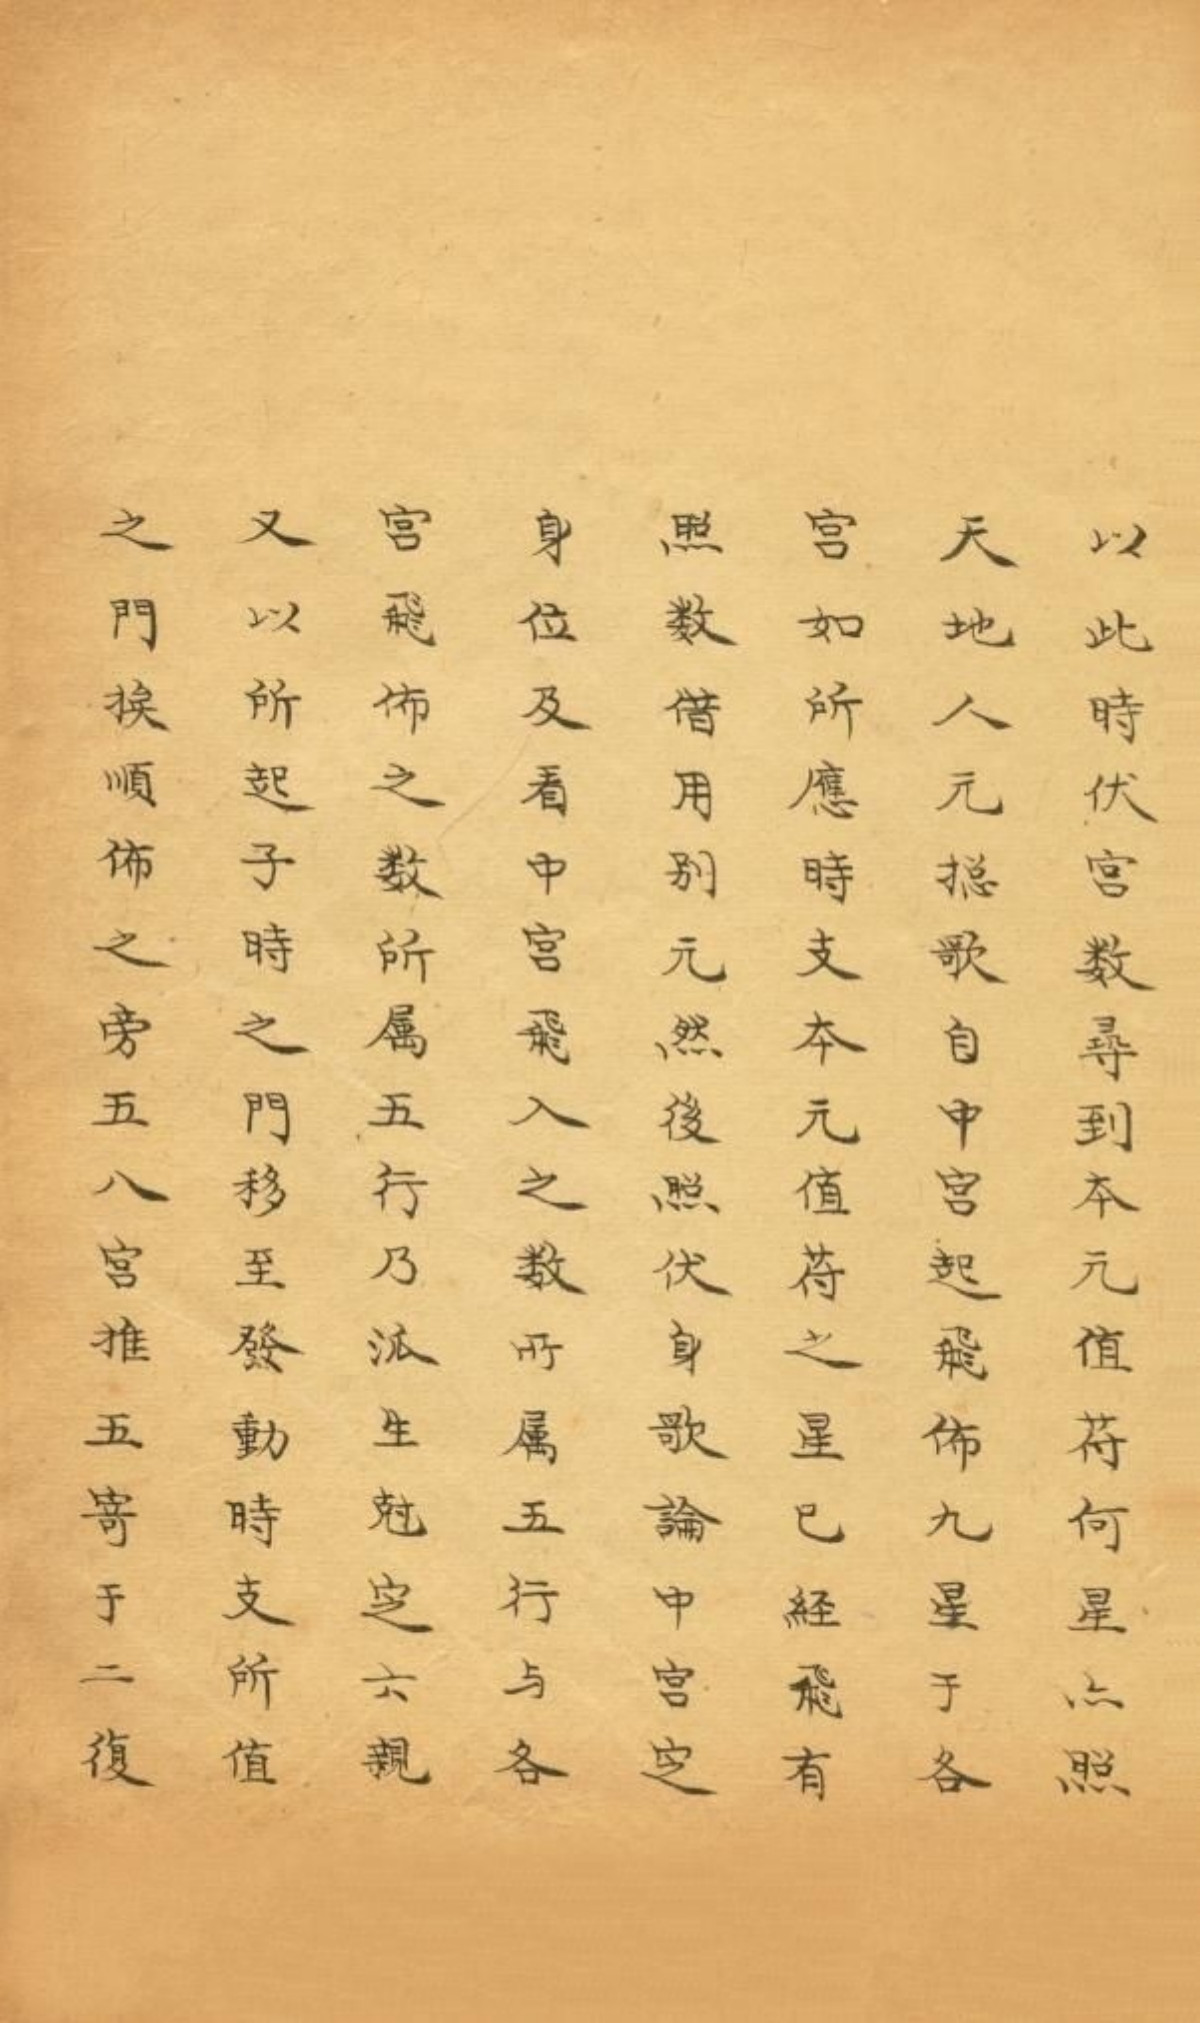 以此時伏宫数尋到本元值苻何星亦照
天地人元揔歌自中宫起飛佈九星于各
宫如所應時支本元值苻之星已経飛有
照数借用别元然後照伏身歌論中宫定
身位及看中宫飛入之数所属五行与各
宫飛佈之数所属五行乃派生尅定六親
又以所起子時之門移至發動時支所值
之門挨順佈之旁五八宫推五寄于二復